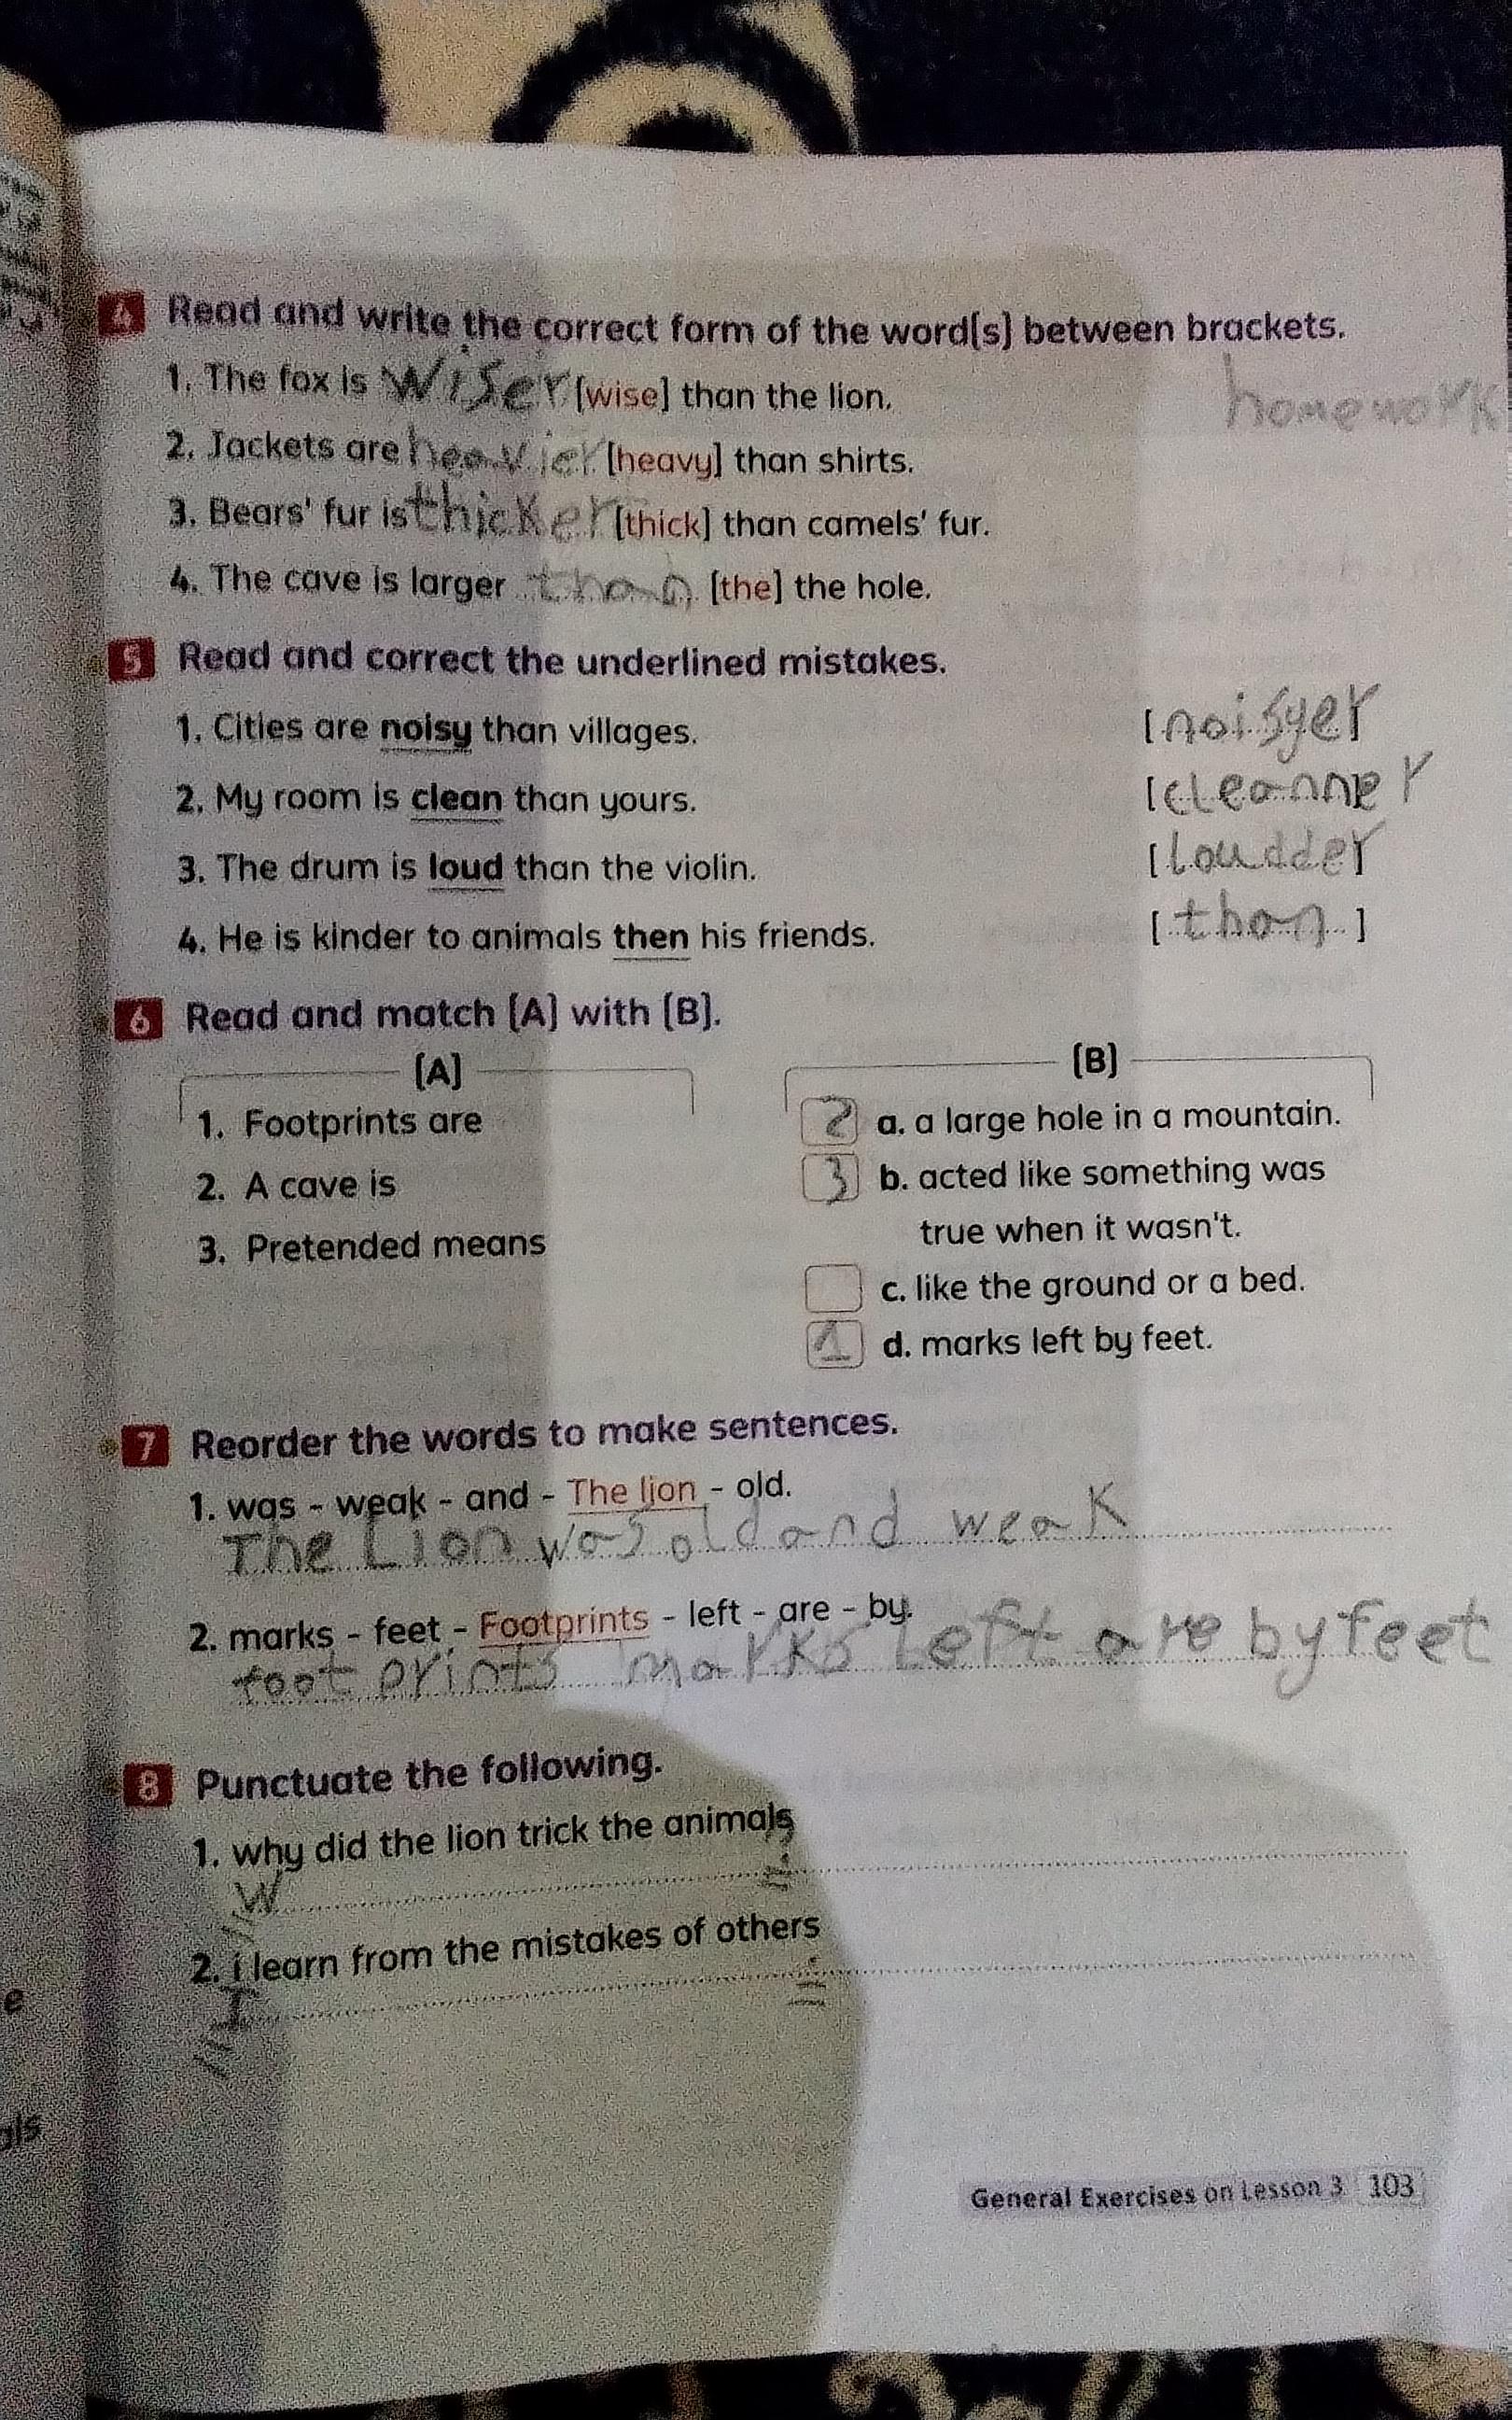 4 Read and write the correct form of the word(s) between brackets.
1. The fox is wiser [wise] than the lion.
homework
2. Jackets are heavier [heavy] than shirts.
3. Bears' fur is thicker [thick] than camels' fur.
4. The cave is larger than [the] the hole.
5 Read and correct the underlined mistakes.
1. Cities are noisy than villages. [noisyer]
2. My room is clean than yours. [cleanner]
3. The drum is loud than the violin. [loudder]
4. He is kinder to animals then his friends. [than]
6 Read and match (A) with (B).
(A) (B)
1. Footprints are
2 a. a large hole in a mountain.
2. A cave is
3 b. acted like something was
true when it wasn't.
3. Pretended means
c. like the ground or a bed.
1 d. marks left by feet.
7 Reorder the words to make sentences.
1. was - weak - and - The lion - old.
The Lion was old and weak
2. marks - feet - Footprints - left - are - by.
foot prints marks left are by feet
8 Punctuate the following.
1. why did the lion trick the animals
W
2. i learn from the mistakes of others
I .
e
als
General Exercises on Lesson 3 103